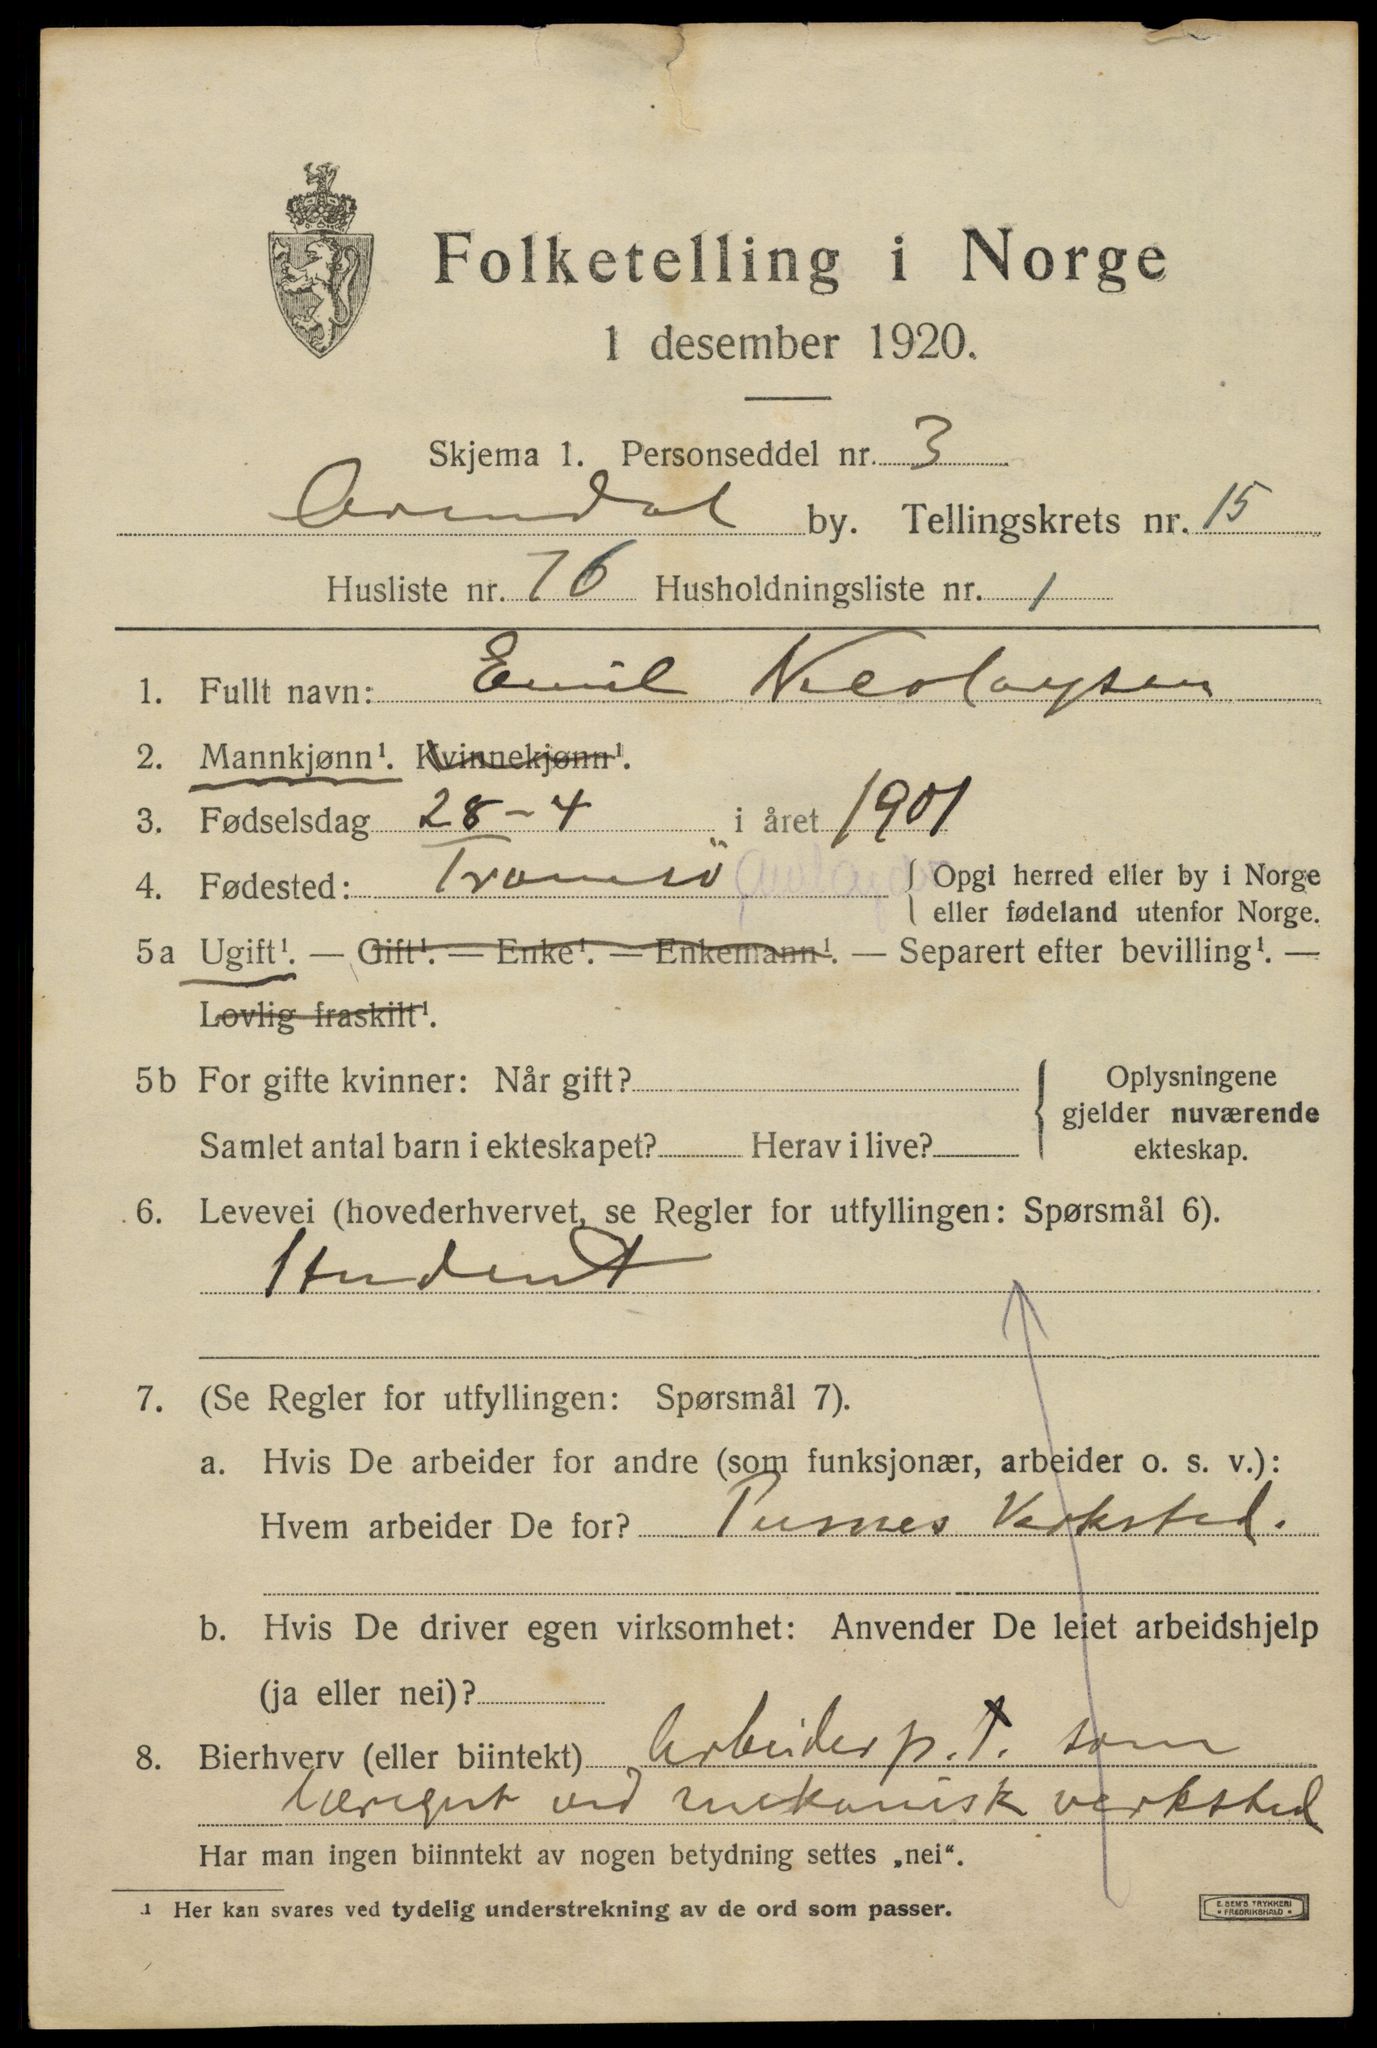 Folketelling i Norge
1 desember 1920.
Skjema 1. Personseddel nr. 3
Arendal by. Tellingskrets nr. 15
Husliste nr. 76 Husholdningsliste nr. 1
1. Fullt navn: Emil Nicolaysen
2. Mannkjønn¹. Kvinnekjønn¹.
3. Fødselsdag 28-4 i året 1901
4. Fødested: Tromsö { Opgi herred eller by i Norge
eller fødeland utenfor Norge.
5a Ugift¹. — Gift¹. — Enke¹. — Enkemann¹. — Separert efter bevilling¹. —
Lovlig fraskilt¹.
5b For gifte kvinner: Når gift?
Samlet antal barn i ekteskapet? Herav i live?
{ Oplysningene
gjelder nuværende
ekteskap.
6. Levevei (hovederhvervet, se Regler for utfyllingen: Spørsmål 6).
Student
7. (Se Regler for utfyllingen: Spørsmål 7).
a. Hvis De arbeider for andre (som funksjonær, arbeider o. s. v.):
Hvem arbeider De for? Pusnes Verksted.
b. Hvis De driver egen virksomhet: Anvender De leiet arbeidshjelp
(ja eller nei)?
8. Bierhverv (eller biintekt) Arbeider p.t. som
læregut ved mekanisk verksted
Har man ingen biinntekt av nogen betydning settes „nei“.
¹ Her kan svares ved tydelig understrekning av de ord som passer.
E. SEM'S TRYKKERI
• FREDRIKSHALD •